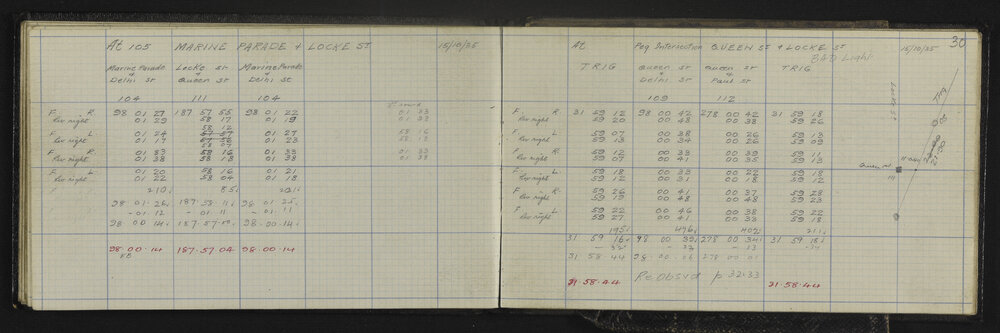 At 105 MARINE PARADE & LOCKE ST 15/10/25
Marine Parade & Delhi St
Locke St & Queen St
Marine Parade & Delhi St
104 111 104
2nd round
F R 98 01 27 187 57 55 98 01 22 01 33
Rev right 01 29 58 17 01 19 01 33
58 12
F L 01 24 57 57 01 27 58 16
Rev right 01 17 01 23 58 13
F R 01 33 58 16 01 33 01 33
Rev right 01 38 58 18 01 38 01 38
F L 01 20 58 16 01 21
Rev right 01 22 58 04 01 18
210 85 201
98 01 26 187 58 11 98 01 25
- 01 12 - 01 11 - 01 11
98 00 14 187 57 00 98 00 14
98·00·14 187·57·04 98·00·14
30
At Peg Intersection QUEEN ST & LOCKE ST 15/10/25
BAD Light
TRIG
Queen St & Delhi St
Queen St & Paul St
TRIG
109 112
F R 31 59 12 98 00 42 278 00 42 31 59 18
Rev right 59 20 00 48 00 38 59 26
F L 59 07 00 38 00 26 59 13
Rev right 59 13 00 34 00 26 59 09
F R 59 12 00 38 00 39 59 11
Rev right 59 07 00 41 00 35 59 13
F L 59 18 00 33 00 22 59 18
Rev right 59 12 00 31 00 18 59 12
F R 59 26 00 41 00 37 59 28
Rev right 59 19 00 48 00 48 59 23
F L 59 22 00 46 00 38 59 22
Rev right 59 27 00 41 00 33 59 18
195 476 402 211
31 59 16 98 00 39 278 00 34 31 59 18
31 58 44 98 00 06 278 00 01
31·58·44 Re Obsvd p 32·33 31·58·44
Locke St
TRIG
Queen St
111